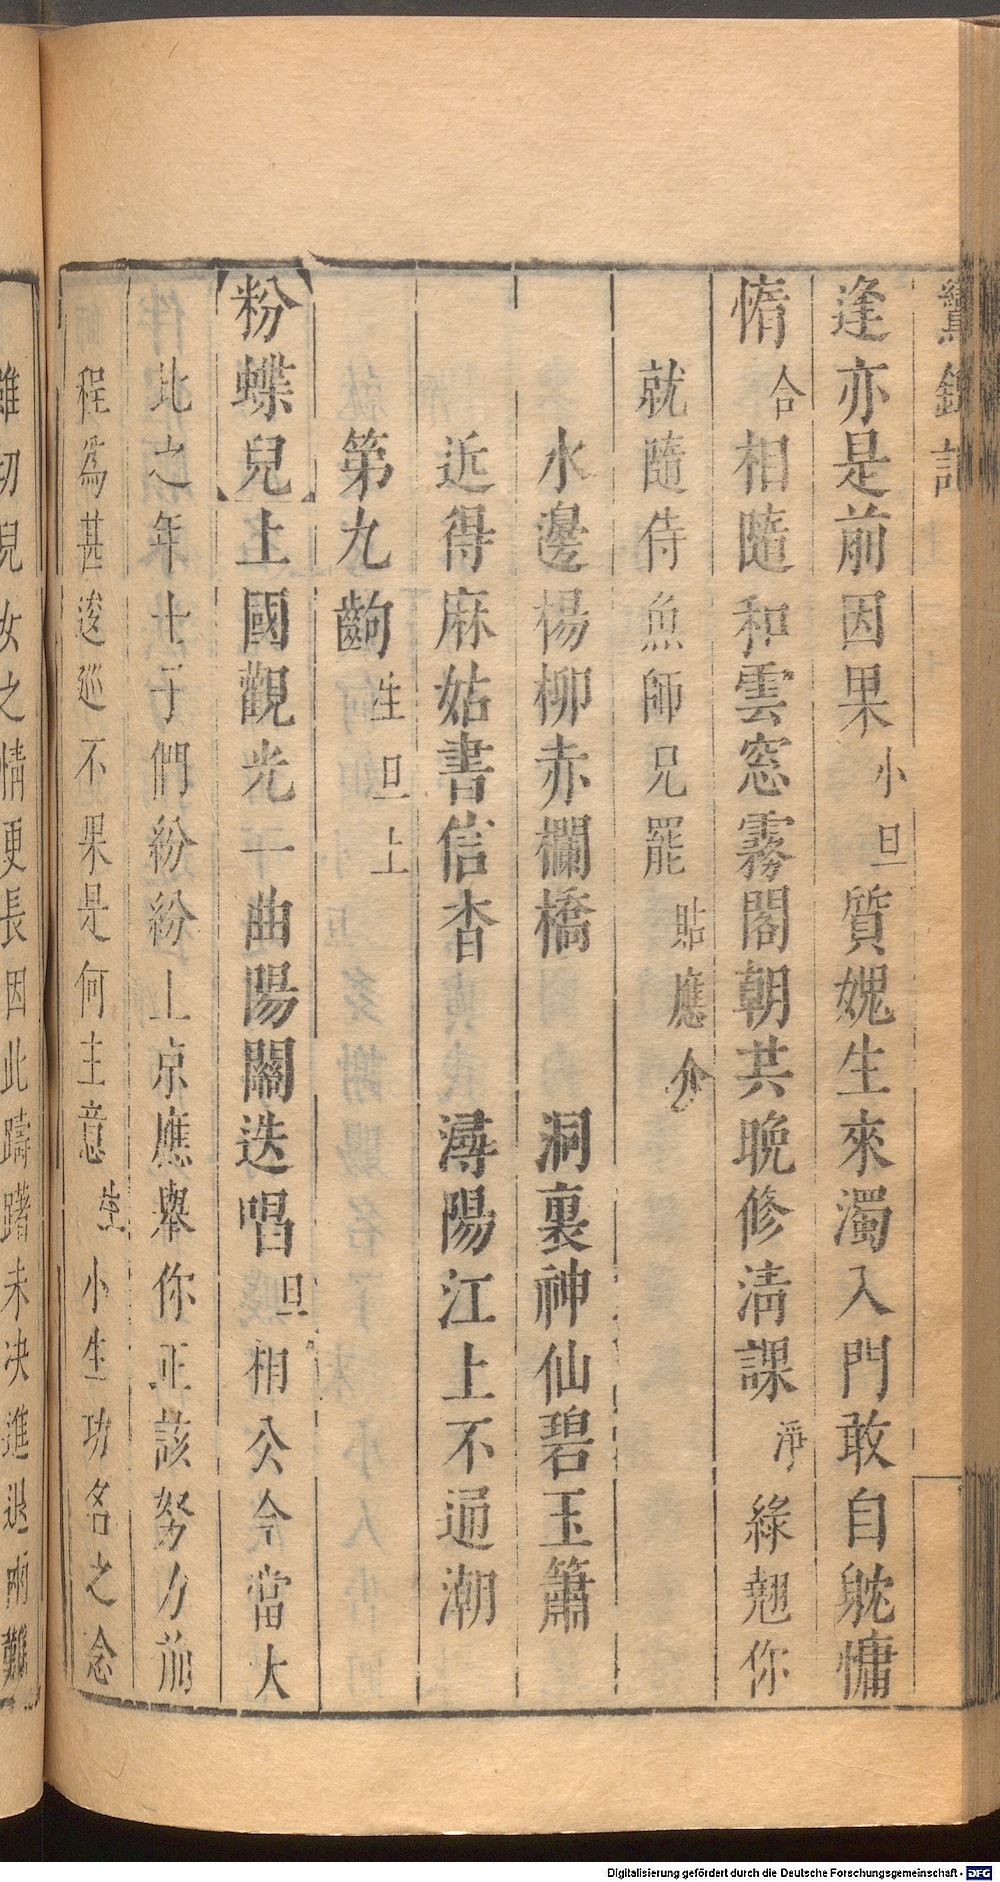 鸞鎞記
逢亦是前因果小旦質媿生來濁入門敢自躭慵
惰合相隨和雲窓霧閣朝共晩修清課淨綠翹你
就隨侍魚師兄罷貼應介
水邊楊柳赤欄橋 洞裏神仙碧玉簫
近得麻姑書信杳 潯陽江上不通潮
第九齣生旦上
【粉蝶兒】上國觀光一曲陽關迭唱旦相公今當大
比之年士子們紛紛上京應舉你正該努力前
程爲甚逡巡不果是何主意生小生功名之念
雖切兒女之情更長因此躊躇未决進退兩難
Digitalisierung gefördert durch die Deutsche Forschungsgemeinschaft - DFG